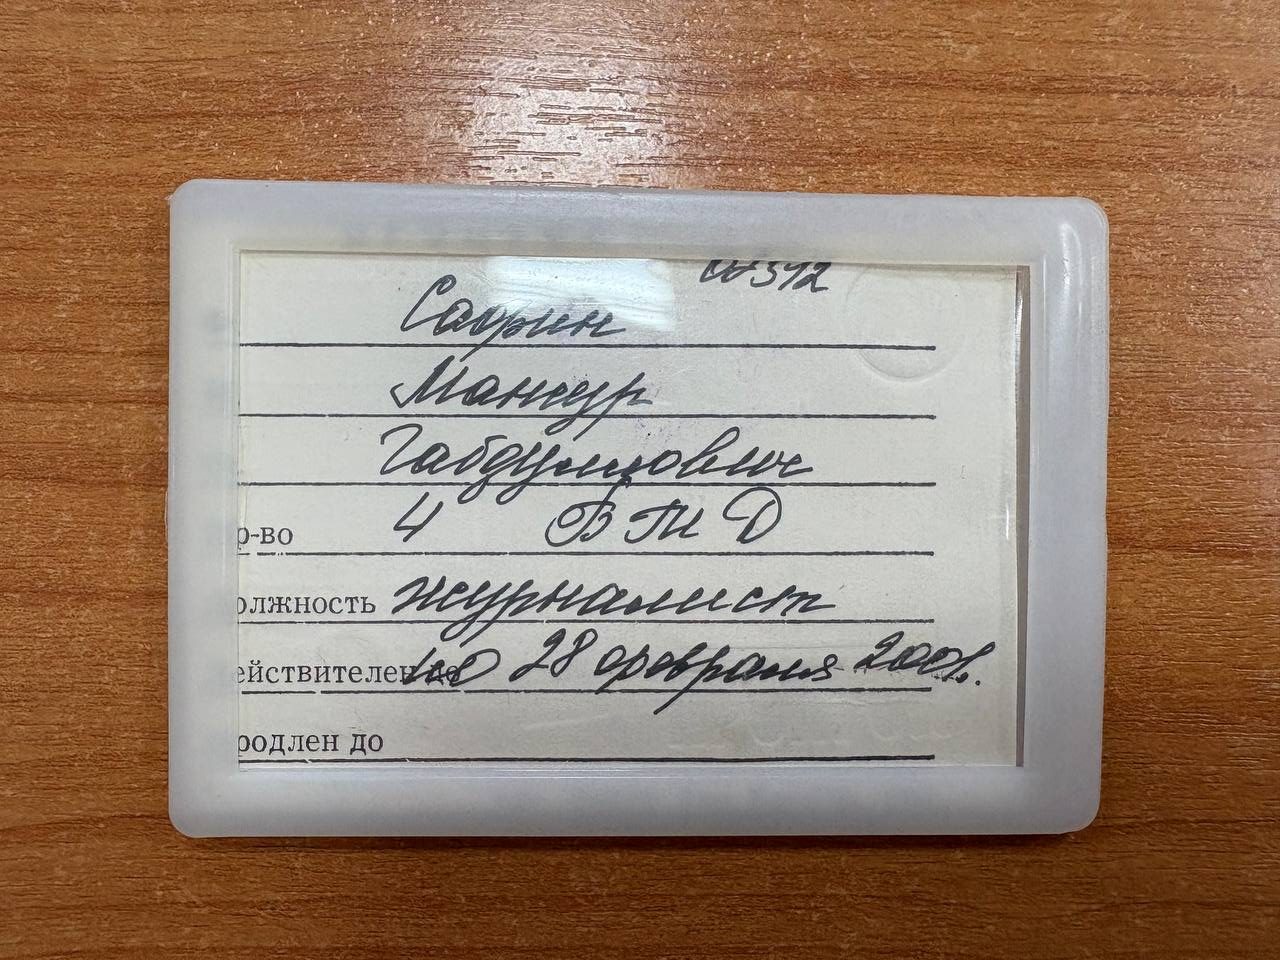 07342
Сафин
Мансур
р-во 4 ВТД
олжность журналист
ействителен до по 28 февраля 2001.
родлен до